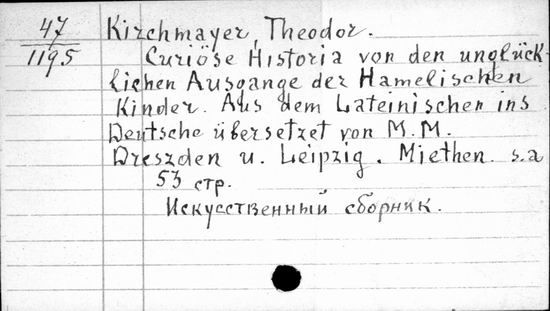 47
1195
Kirchmayer, Theodor.
Curiöse Historia von den unglück-
lichen Ausgange der Hamelischen
Kinder. Aus dem Lateinischen ins
Deutsche übersetzet von M. M.
Dreszden u. Leipzig. Miethen. s.a
53 стр.
Искусственный сборник.